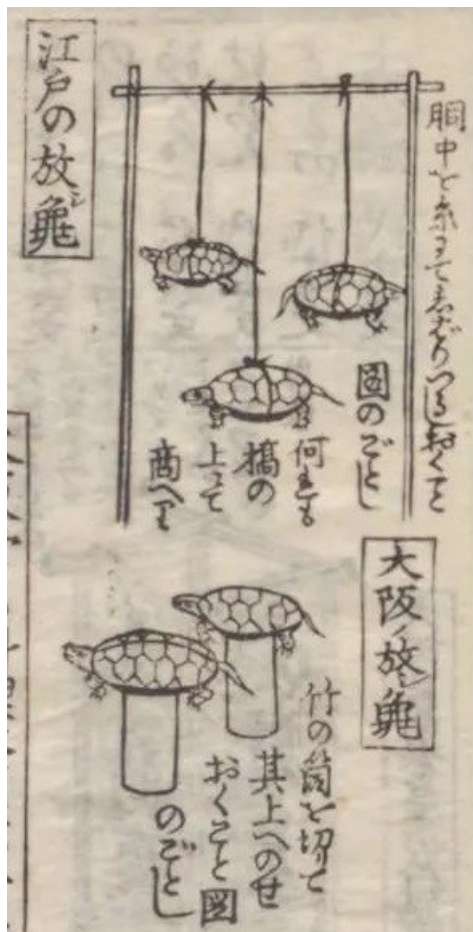 江戸の放シ亀
胴中を糸ニてしばりつるしおくこと
圖のごとし
何れも
橋の
上ニて
商へり
大阪ノ放シ亀
竹の筒を切りて
其上へのせ
おくこと圖
のごとし